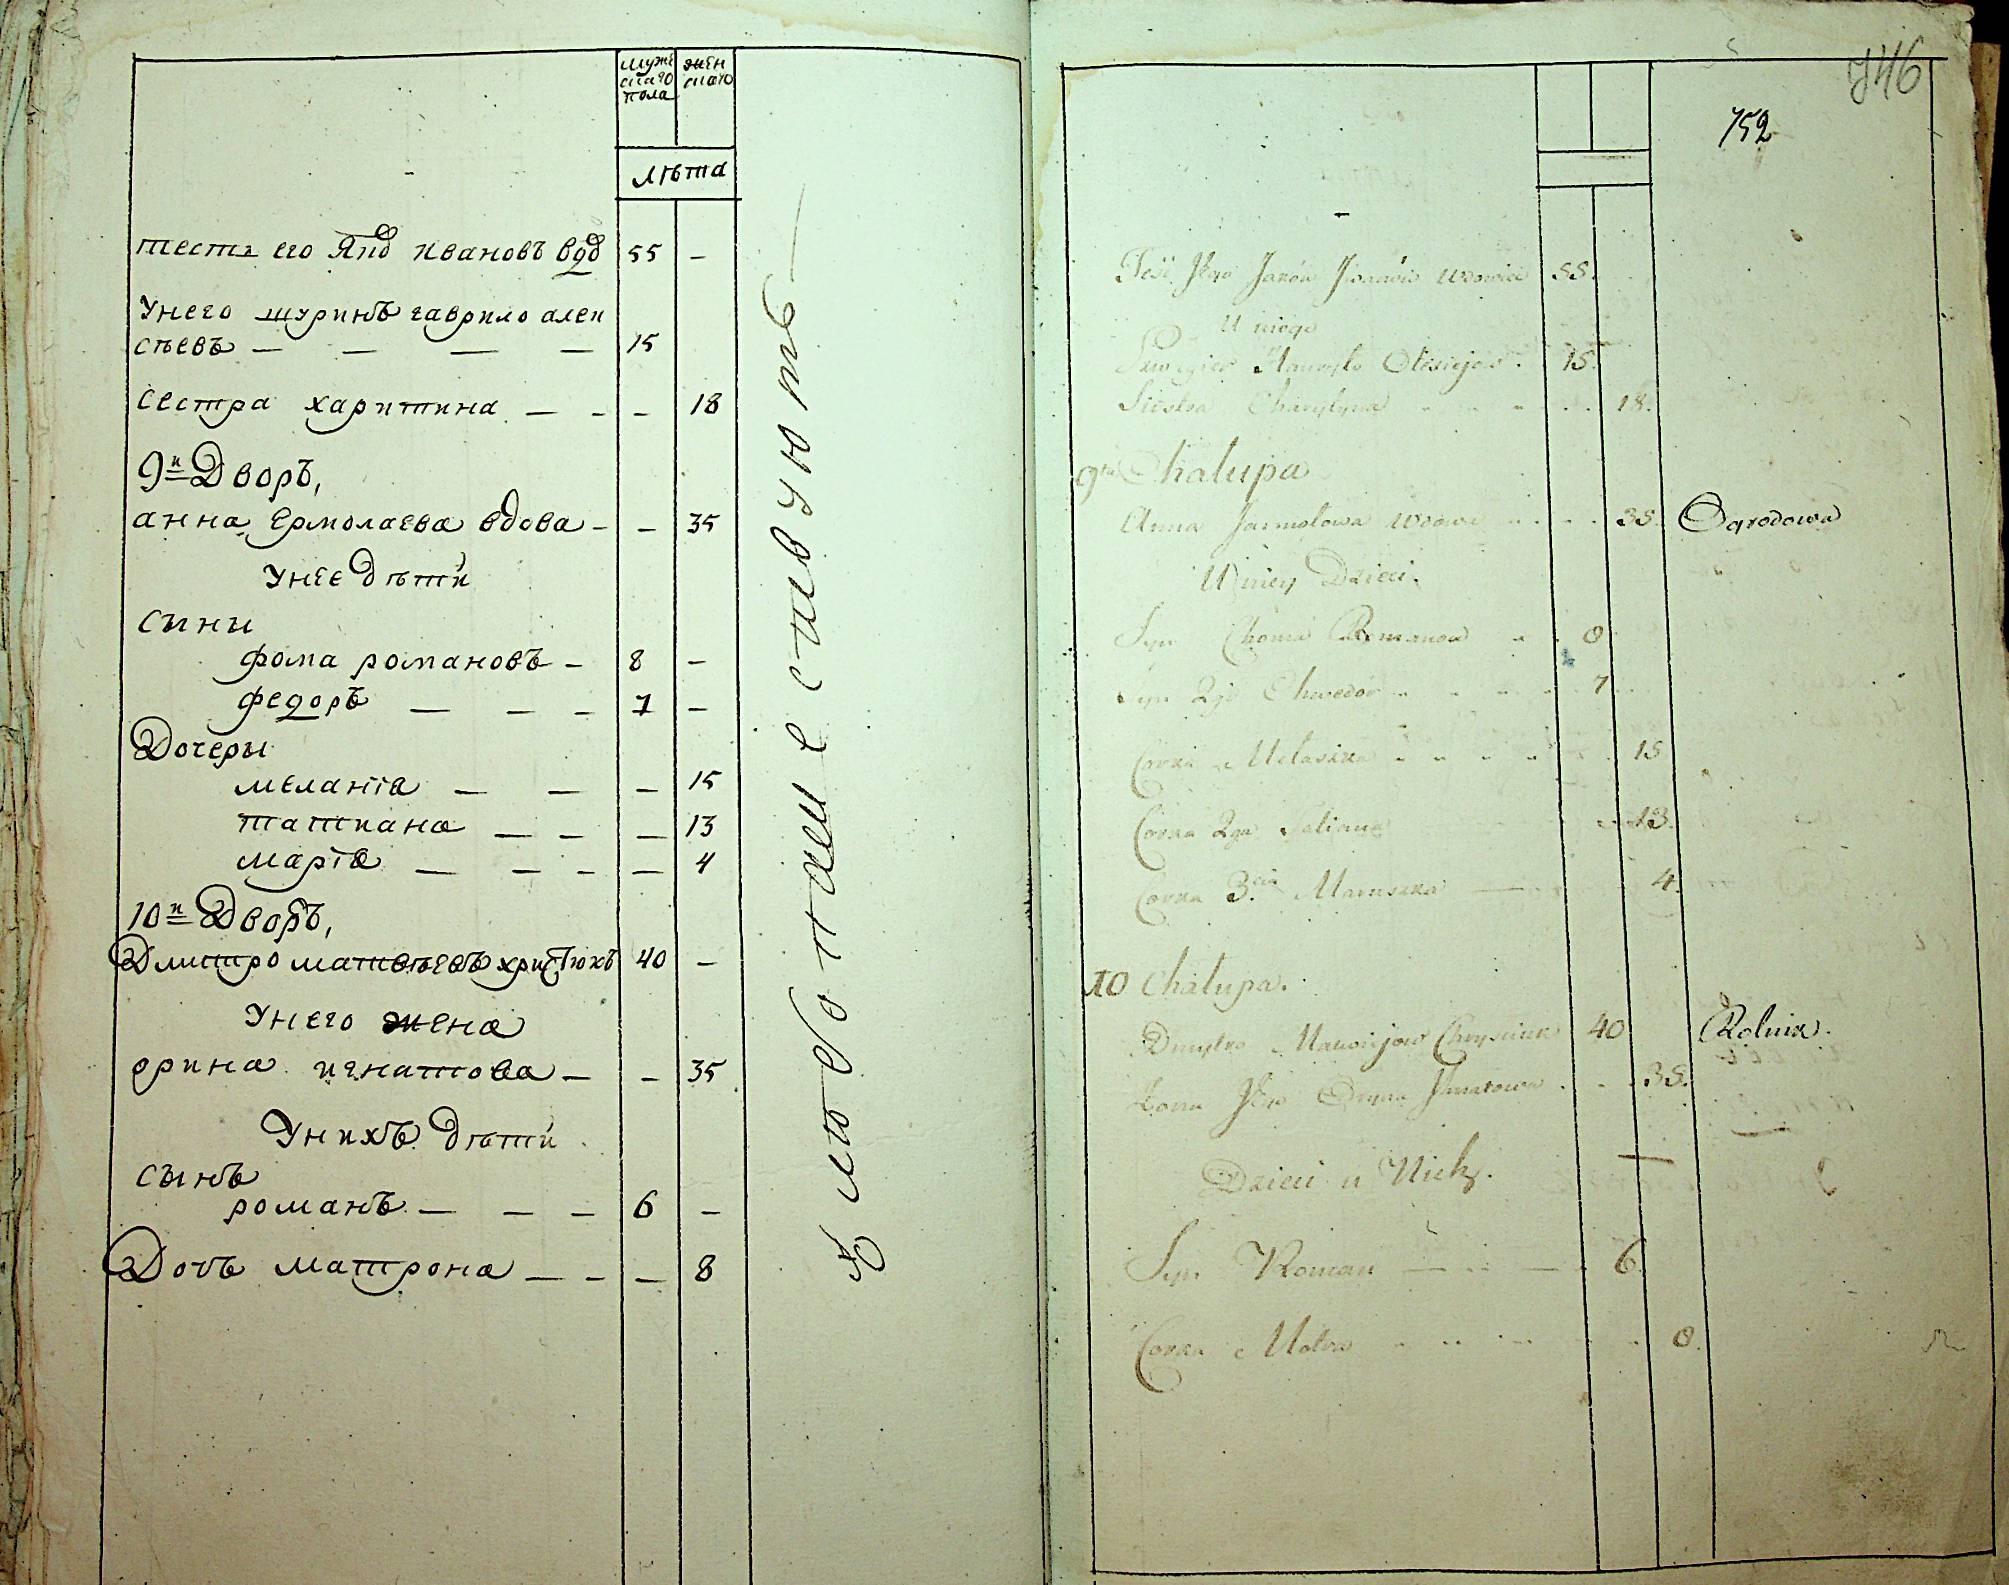 мужескаго пола
женскаго
лѣта
тесть его Яковъ Ивановъ вдовъ 55 —
У него шуринъ гаврило алек
сѣевъ — — — — 15
сестра харитина — - - 18
9й Дворъ,
анна ермолаева вдова - - 35
У нее дѣти
сыны
фома романовъ - 8 -
федоръ — — - 7 -
Дочеры
меланія — — — 15
татиана — — — 13
марія — - - — 4
10й Дворъ,
Дмитро матвѣевъ христюкъ 40 -
У него жена
орина игнатова — - 35
У нихъ дѣти
сынъ
романъ — — - 6 -
Дочь матрона — - — 8
746
752
Jego Iwanow Wdowiec 55.
U niego
Olexiejow 15.
Siostra Charytyna 18.
9ta Chalupa
Anna Jarmolowa Wdowa 35. Ogrodowa
U niey Dzieci.
Syn Choma Romanow 8
Syn 2gi Chwedor 7
Corka Melaszka 15
Corka 2ga Tatiana 13.
Corka 3cia Maruszka 4.
10 Chalupa.
Dmytro Matwiejow Chrysciuk 40 Rolnik.
Żona Jego Oryna Jhnatowa 35.
Dzieci u Nich.
Syn Roman 6.
Corka Motra 8.